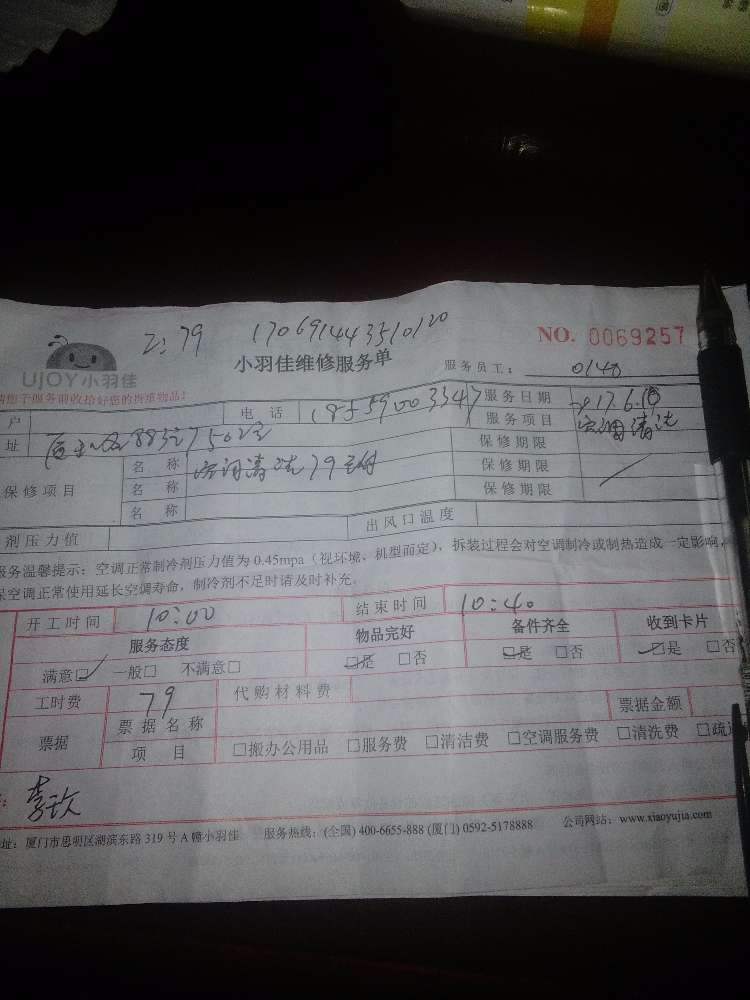 Z:79 170691443510120
NO. 0069257
UJOY小羽佳
小羽佳维修服务单
服务员工: 0140
请您于服务前收拾好您的拆维物品!
户 电话 18559003347 服务日期 2017.6.18
址 883号7502室 服务项目 空调清洗
保修期限
保修项目 名称 空调清洗79 保修期限
名称 保修期限
名称
剂压力值 出风口温度
服务温馨提示:空调正常制冷剂压力值为0.45mpa(视环境、机型而定),拆装过程会对空调制冷或制热造成一定影响,
保空调正常使用延长空调寿命,制冷剂不足时请及时补充。
开工时间 10:00 结束时间 10:40
服务态度 物品完好 备件齐全 收到卡片
满意☑ 一般□ 不满意□ ☑是 □否 ☑是 □否 ☑是 □否
工时费 79 代购材料费 票据金额
票据 票据名称
项目 □搬办公用品 □服务费 □清洁费 □空调服务费 □清洗费 □疏通
李玖
址:厦门市思明区湖滨东路319号A幢小羽佳 服务热线:(全国)400-6655-888 (厦门)0592-5178888 公司网站:www.xiaoyujia.com